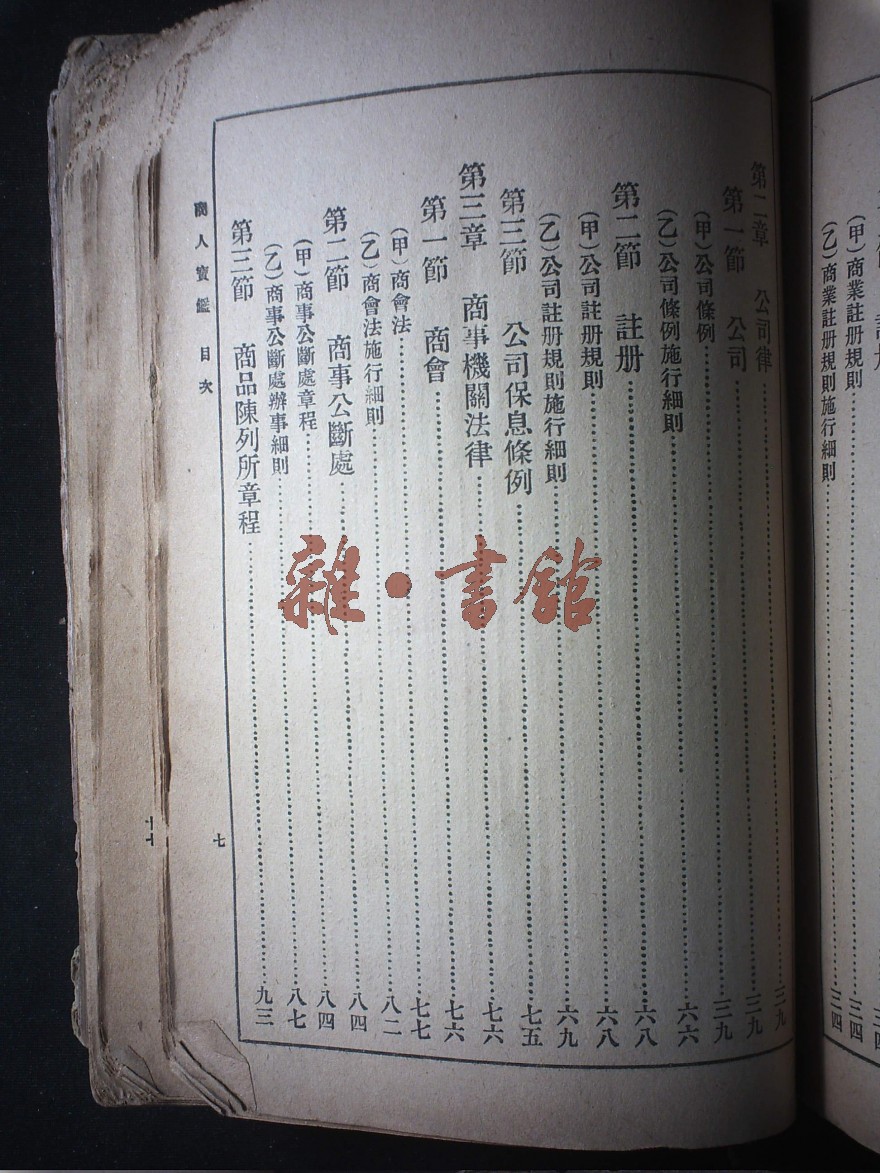 (甲)商業註册規則……三四
(乙)商業註册規則施行細則……三四
第二章 公司律……三九
第一節 公司……三九
(甲)公司條例……三九
(乙)公司條例施行細則……六六
第二節 註册……六八
(甲)公司註册規則……六八
(乙)公司註册規則施行細則……六九
第三節 公司保息條例……七五
第三章 商事機關法律……七六
第一節 商會……七六
(甲)商會法……七七
(乙)商會法施行細則……八二
第二節 商事公斷處……八四
(甲)商事公斷處章程……八四
(乙)商事公斷處辦事細則……八七
第三節 商品陳列所章程……九三
商人寶鑑 目次
七
雜·書館